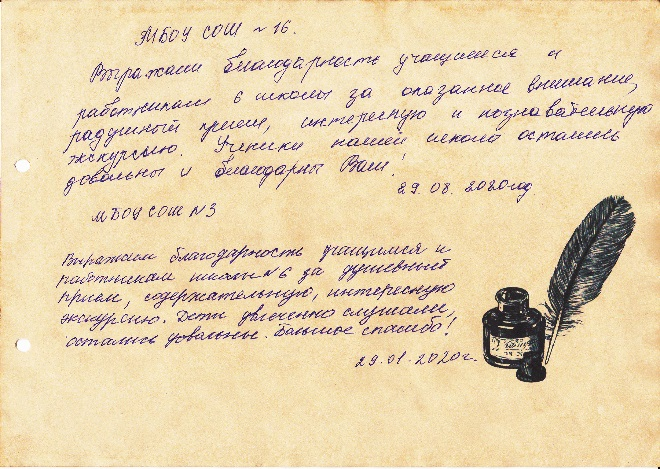 МБОУ СОШ №16.
Выражаем благодарность учащимся и
работникам 6 школы за оказанное внимание,
радушный прием, интересную и познавательную
экскурсию. Ученики нашей школы остались
довольны и благодарны Вам!
29.08.2020год
МБОУ СОШ №3
Выражаем благодарность учащимся и
работникам школы №6 за душевный
прием, содержательную, интересную
экскурсию. Дети увлеченно слушали,
остались довольные. Большое спасибо!
29.01.2020г.